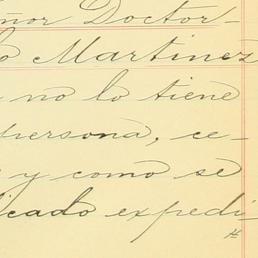 eñor Doctor-
o Martinez
no lo tiene
persona, ce-
y como se
icado expedi